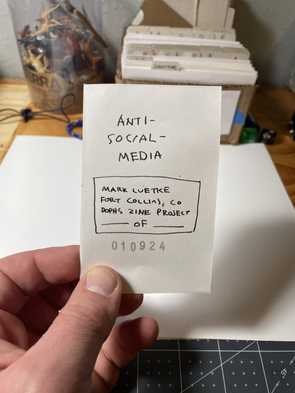 ANTI-
SOCIAL-
MEDIA
MARK LUETKE
FORT COLLINS, CO
DOPHS ZINE PROJECT
____ OF ____
010924